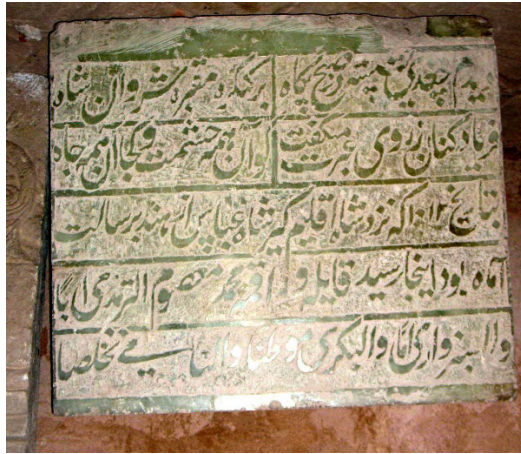 دیدم چغدی نشسته در صبح پگاه بر کنگره مقبره شروان شاه
فریاد کنان ز روی عبرت میگفت کو آن همه حشمت و کجا آن همه جاه
بتاریخ که نزد شاه اقلیم گیر شاه عباس از هند برسالت
آمده بود اینجا رسید قایله و محمد معصوم الترمذی ابا
والسبزواری اما والبکری وطنا والنامی تخلصا